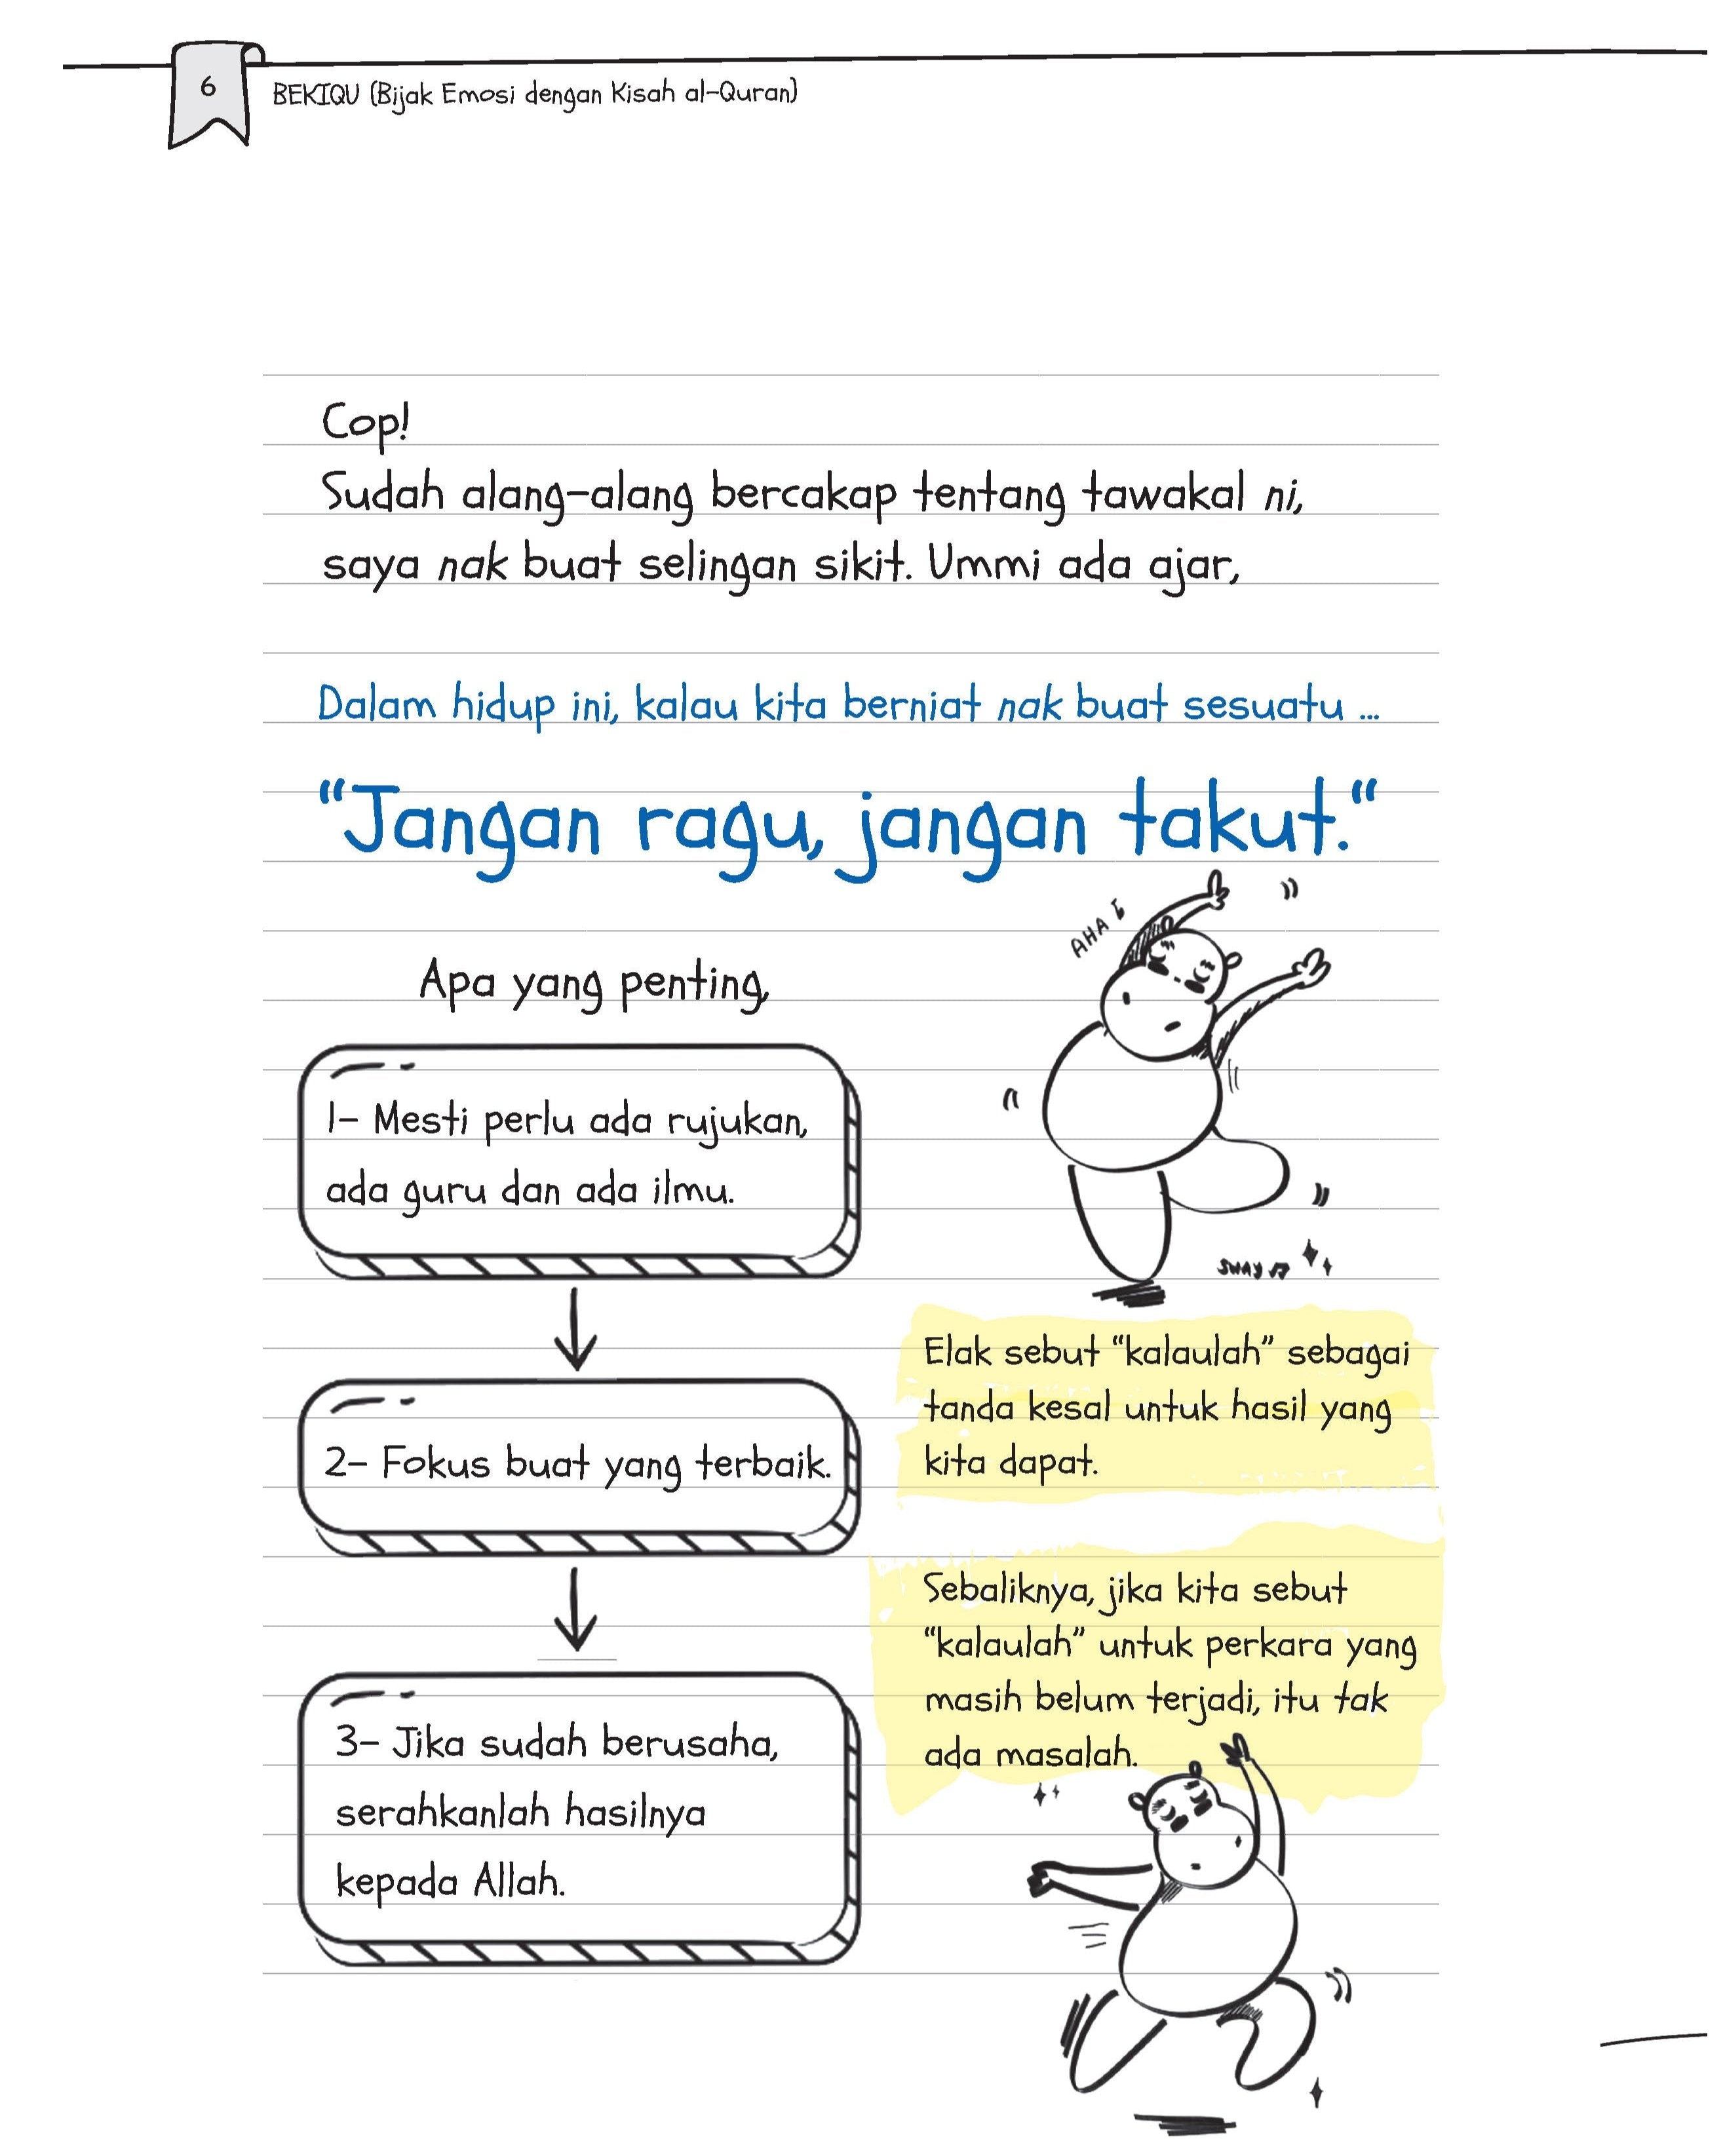 6
BEKIQU (Bijak Emosi dengan Kisah al-Quran)
Cop!
Sudah alang-alang bercakap tentang tawakal ni,
saya nak buat selingan sikit. Ummi ada ajar,
Dalam hidup ini, kalau kita berniat nak buat sesuatu ...
“Jangan ragu, jangan takut.“
AHA
Apa yang penting,
1- Mesti perlu ada rujukan,
ada guru dan ada ilmu.
SWAY
2- Fokus buat yang terbaik.
3- Jika sudah berusaha,
serahkanlah hasilnya
kepada Allah.
Elak sebut “kalaulah” sebagai
tanda kesal untuk hasil yang
kita dapat.
Sebaliknya, jika kita sebut
“kalaulah” untuk perkara yang
masih belum terjadi, itu tak
ada masalah.